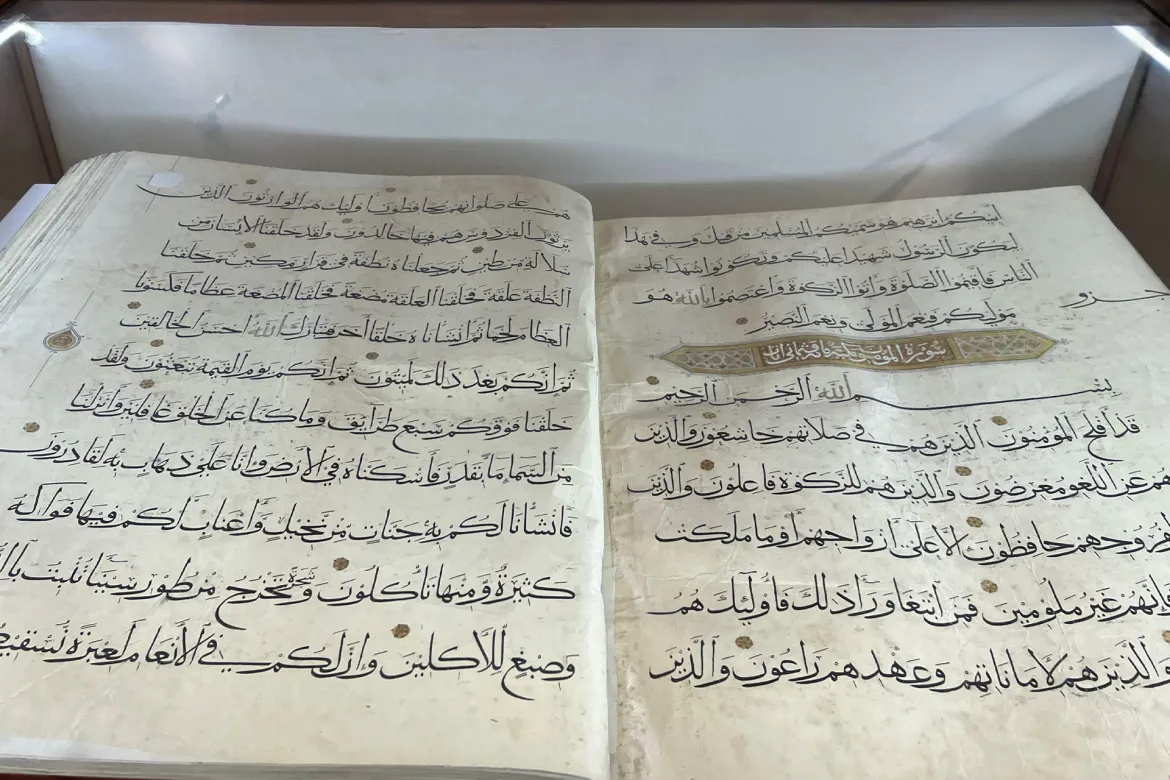 أبيكم إبرهيم هو سميكم المسلمين من قبل وفي هذا
ليكون الرسول شهيدا عليكم وتكونوا شهدا على
الناس فأقيموا الصلوة وآتوا الزكوة واعتصموا بالله هو
جزو
موليكم فنعم المولى ونعم النصير
سورة المؤمنون مكية
بسم الله الرحمن الرحيم
قد أفلح المؤمنون الذين هم في صلاتهم خاشعون والذين
هم عن اللغو معرضون والذين هم للزكوة فاعلون والذين
لفروجهم حافظون إلا على أزواجهم أو ما ملكت
فإنهم غير ملومين فمن ابتغا وراء ذلك فأوليك هم
والذين هم لأماناتهم وعهدهم راعون والذين
هم على صلواتهم يحافظون أوليك هم الوارثون الذين
يرثون الفردوس هم فيها خالدون ولقد خلقنا الإنسان من
سلالة من طين ثم جعلناه نطفة في قرار مكين ثم خلقنا
النطفة علقة فخلقنا العلقة مضغة فخلقنا المضغة عظاما فكسونا
العظام لحما ثم أنشأناه خلقا آخر فتبارك الله أحسن الخالقين
ثم إنكم بعد ذلك لميتون ثم إنكم يوم القيمة تبعثون ولقد
خلقنا فوقكم سبع طرايق وما كنا عن الخلق غافلين وأنزلنا
من السماء ما بقدر فأسكناه في الأرض وإنا على ذهاب به لقادرون
فأنشأنا لكم به جنات من نخيل وأعناب لكم فيها فواكه
كثيرة ومنها تأكلون وشجرة تخرج من طور سيناء تنبت
وصبغ للآكلين وإن لكم في الأنعام لعبرة نسقيكم